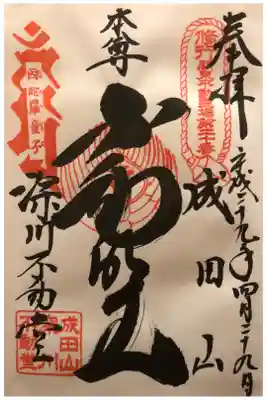 奉拝
平成二十九年四月二十九日
成田山
本尊
不動明王
深川不動堂
成田山